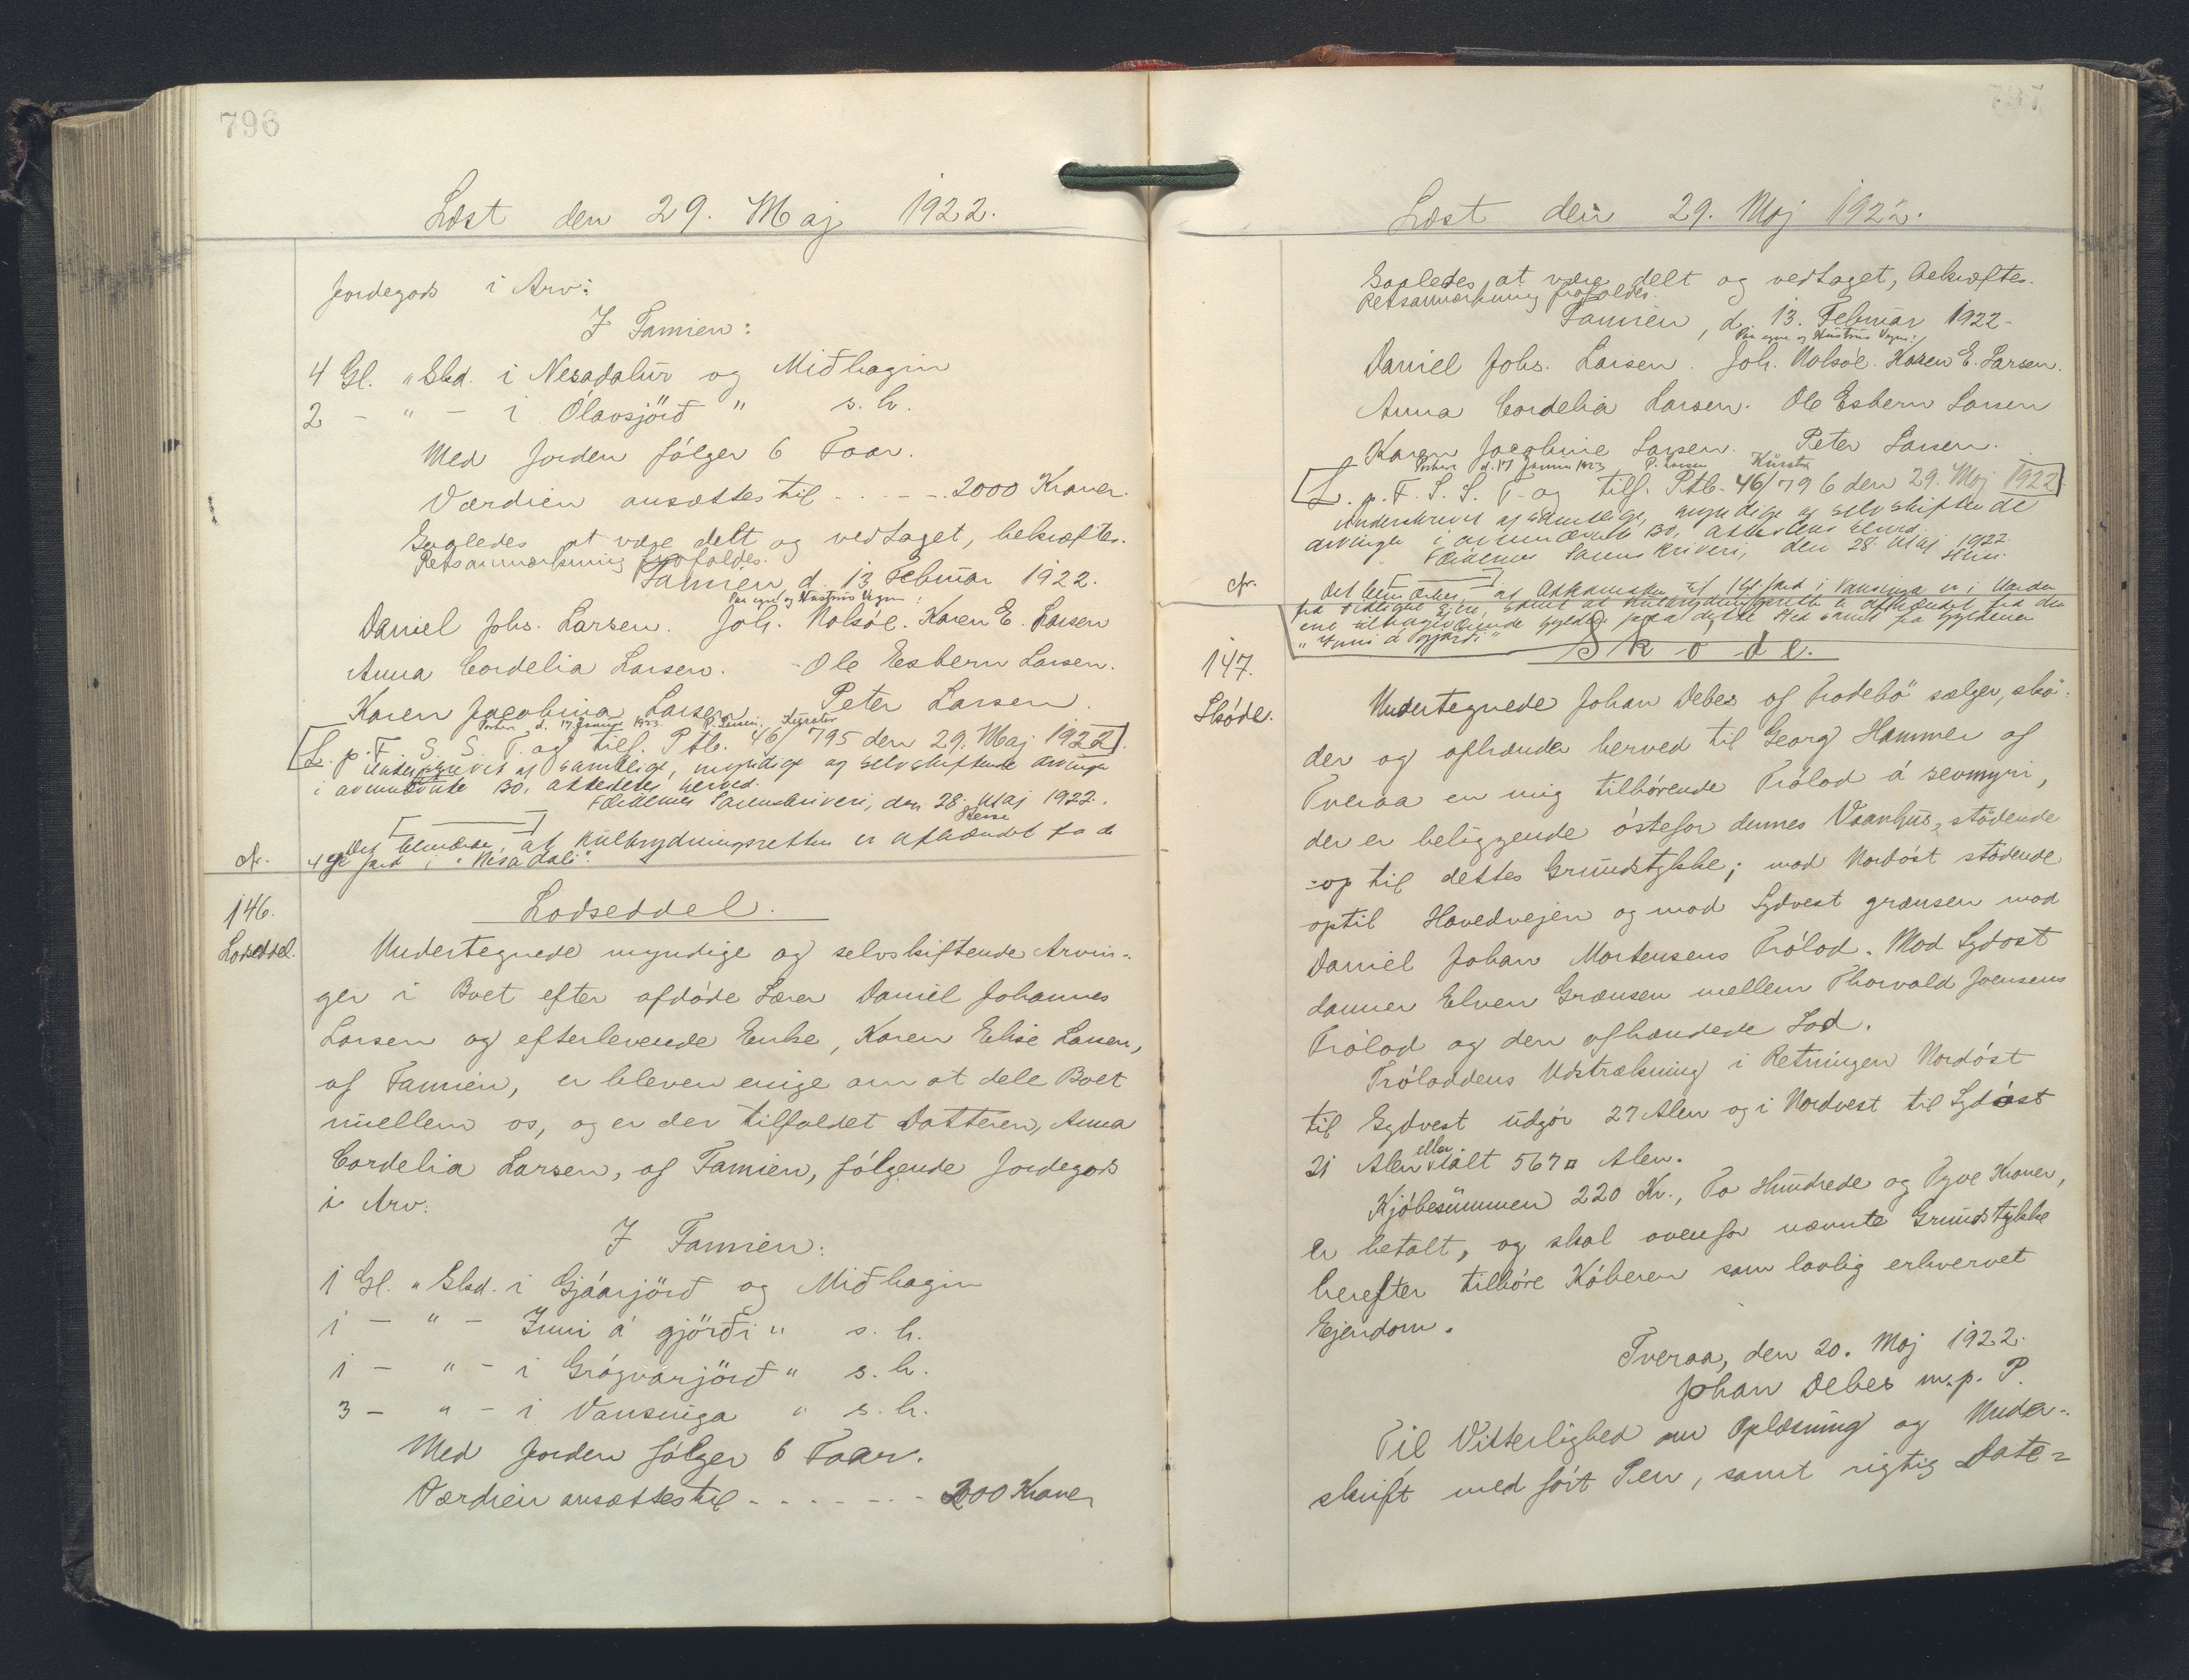 796
Læst den 29. Maj 1922.
Jordegods i Arv:
I Famien:
4 Gl. " Skd. i Nesadalur og Miðhagin
2 - " - i Ólavsjörð " s. h.
Med Jorden følger 6 Faar.
Værdien ansættes til - - - - 2000 Kroner.
Saaledes at være delt og vedtaget, bekræftes.
Retsanmærkning frafaldes.
Famien, d. 13 Februar 1922.
Paa egne og Hustrus Vegne:
Daniel Johs. Larsen. Joh. Nolsöe. Karen E. Larsen
Anna Cordelia Larsen. Ole Esbern Larsen.
Karen Jacobina Larsen Peter Larsen.
d. 17 Januar 1923. P. Larsen, Kurator
L. p. F. S. S. T. og tilf. Ptb. 46/795 den 29. Maj 1922.
Underskrevet af samtlige, myndige og selvskiftende Arvinger
i Bo, attesteres herved.
Færøernes Sorenskriveri, den 28. Maj 1922.
Det bemærkes, at Kulbrydningsretten er afhændet fra de
4 Gl. Jord i "Nesadali".
146.
Lodseddel.
Lodseddel.
Undertegnede myndige og selvskiftende Arvin-
ger i Boet efter afdøde Lærer Daniel Johannes
Larsen og efterlevende Enke, Karen Elise Larsen,
af Famien, er bleven enige om at dele Boet
mellem os, og er der tilfaldet Datteren, Anna
Cordelia Larsen, af Famien, følgende Jordegods
i Arv:
I Famien:
1 Gl. " Skd. i Gjáarjörð og Miðhagin
1 - " - Inni á gjörði " s. h.
1 - " - i Grógvarjörð " s. h.
3 - " - i Vansinga " s. h.
Med Jorden følger 6 Faar.
Værdien ansættes til - - - - - - - 2000 Kroner
Læst den 29. Maj 1922.
Saaledes at være delt og vedtaget, bekræftes.
Retsanmærkning frafaldes.
Famien, d. 13. Februar 1922-
Paa egne og Hustrus Vegne:
Daniel Johs. Larsen. Joh. Nolsöe. Karen E. Larsen.
Anna Cordelia Larsen. Ole Esbern Larsen
Karen Jacobine Larsen. Peter Larsen.
d. 17 Januar 1923 P. Larsen Kurator
L. p. F. S. S. T. og tilf. Ptb. 46/796 den 29. Maj 1922
Underskrevet af samtlige, myndige og selvskiftende
Arvinger i Bo, attesteres herved.
Færøernes Sorenskriveri, den 28. Maj 1922.
Det bemærkes, at Adkomsten til 1 Gl. Jord i Vansinga er i Orden
fra tidligere Ejer, samt at Kulbrydningsretten er afhændet fra den
"Inni á gjørði"
147.
Skøde.
Skøde.
Undertegnede Johan Debes af Frodebø sælger, skø-
der og afhænder herved til Georg Hammer af
Tveraa en mig tilhørende Trølod á sevmyri,
der er beliggende østefor dennes Vaanhus, stødende
op til dettes Grundstykke; mod Nordøst stødende
optil Hovedvejen og mod Sydvest grænsen mod
Daniel Johan Mortensens Trølod. Mod Sydøst
danner Elven Grænsen mellem Thorvald Joensens
Trølod og den afhændede Lod.
Trøloddens Udstrækning i Retningen Nordøst
til Sydvest udgør 27 Alen og i Nordvest til Sydøst
21 Alen eller ialt 567 □ Alen.
Kjøbesummen 220 Kr., To Hundrede og Tyve Kroner,
er betalt, og skal ovenfor nævnte Grundstykke
herefter tilhøre Køberen som lovlig erhvervet
Ejendom.
Tveraa, den 20. Maj 1922.
Johan Debes m. p. P.
Til Vitterlighed om Oplæsning og Under-
skrift med ført Pen, samt rigtig Date=